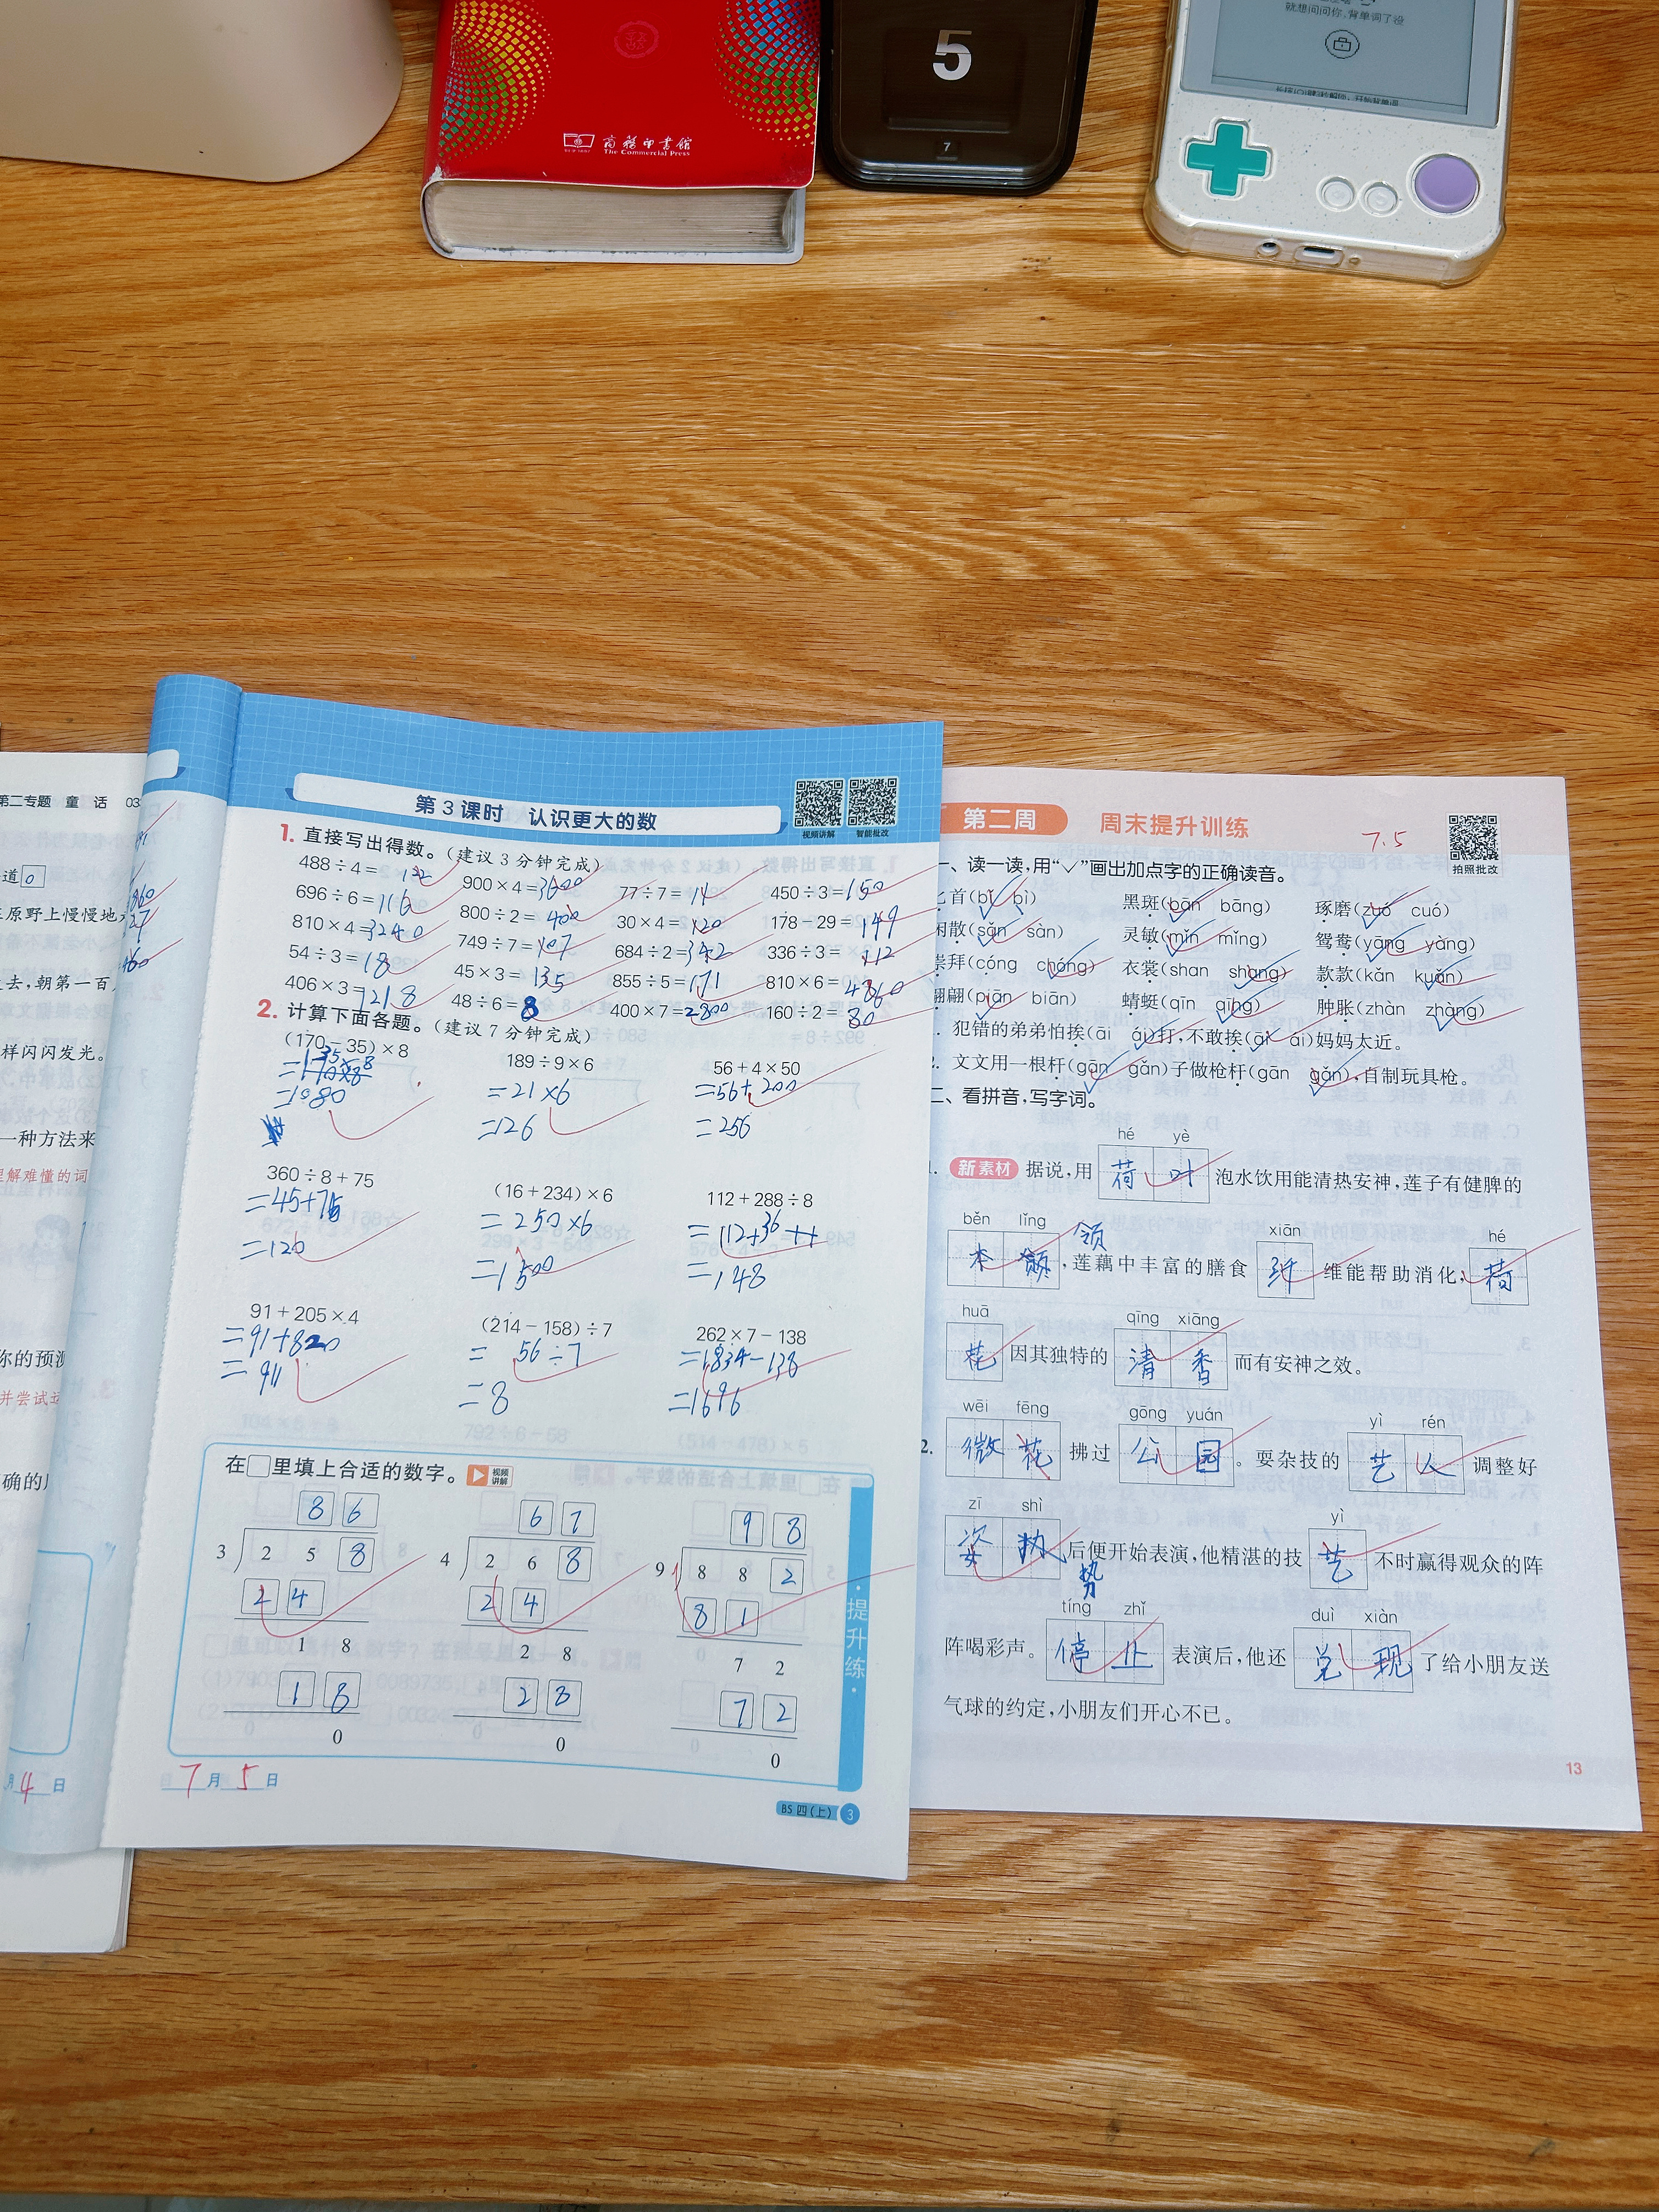 就想问问你,背单词了没
5
7
商务印书馆
The Commercial Press
第二专题 童 话 03
道 0
原野上慢慢地
去,朝第一百
样闪闪发光。
一种方法来
理解难懂的词
你的预测
并尝试运
确的
月 4 日
第3课时 认识更大的数
视频讲解 智能批改
1. 直接写出得数。(建议3分钟完成)
488÷4=122 900×4=3600 77÷7=11 450÷3=150
696÷6=116 800÷2=400 30×4=120 178-29=149
810×4=3240 749÷7=107 684÷2=342 336÷3=112
54÷3=18 45×3=135 855÷5=171 810×6=4860
406×3=1218 48÷6=8 400×7=2800 160÷2=80
2. 计算下面各题。(建议7分钟完成)
(170-35)×8 189÷9×6 56+4×50
=135×8 =21×6 =56+200
=1080 =126 =256
360÷8+75 (16+234)×6 112+288÷8
=45+75 =250×6 =112+36
=120 =1500 =148
91+205×4 (214-158)÷7 262×7-138
=91+820 = 56÷7 =1834-138
=911 =8 =1696
在□里填上合适的数字。 视频讲解
8 6 6 7 9 8
3 2 5 8 4 2 6 8 9 8 8 2
2 4 2 4 8 1
1 8 2 8 7 2
1 8 2 8 7 2
0 0 0
·提升练·
7 月 5 日
BS 四(上) 3
第二周 周末提升训练 7.5
拍照批改
一、读一读,用“✓”画出加点字的正确读音。
匕首(bǐ bì) 黑斑(bān bāng) 琢磨(zuó cuó)
闲散(sǎn sàn) 灵敏(mǐn mǐng) 鸳鸯(yāng yàng)
崇拜(cóng chóng) 衣裳(shan shang) 款款(kǎn kuǎn)
翩翩(piān biān) 蜻蜓(qīn qīng) 肿胀(zhàn zhàng)
犯错的弟弟怕挨(āi ái)打,不敢挨(āi ái)妈妈太近。
2. 文文用一根杆(gān gǎn)子做枪杆(gān gǎn),自制玩具枪。
二、看拼音,写字词。
hé yè
1. 新素材 据说,用 荷叶 泡水饮用能清热安神,莲子有健脾的
běn lǐng xiān hé
领
本领 ,莲藕中丰富的膳食 纤 维能帮助消化, 荷
huā qīng xiāng
花 因其独特的 清香 而有安神之效。
wēi fēng gōng yuán yì rén
2. 微花 拂过 公园 。耍杂技的 艺人 调整好
zī shì yì
姿执 后便开始表演,他精湛的技 艺 不时赢得观众的阵
势
tíng zhǐ duì xiàn
阵喝彩声。 停止 表演后,他还 兑现 了给小朋友送
气球的约定,小朋友们开心不已。
13